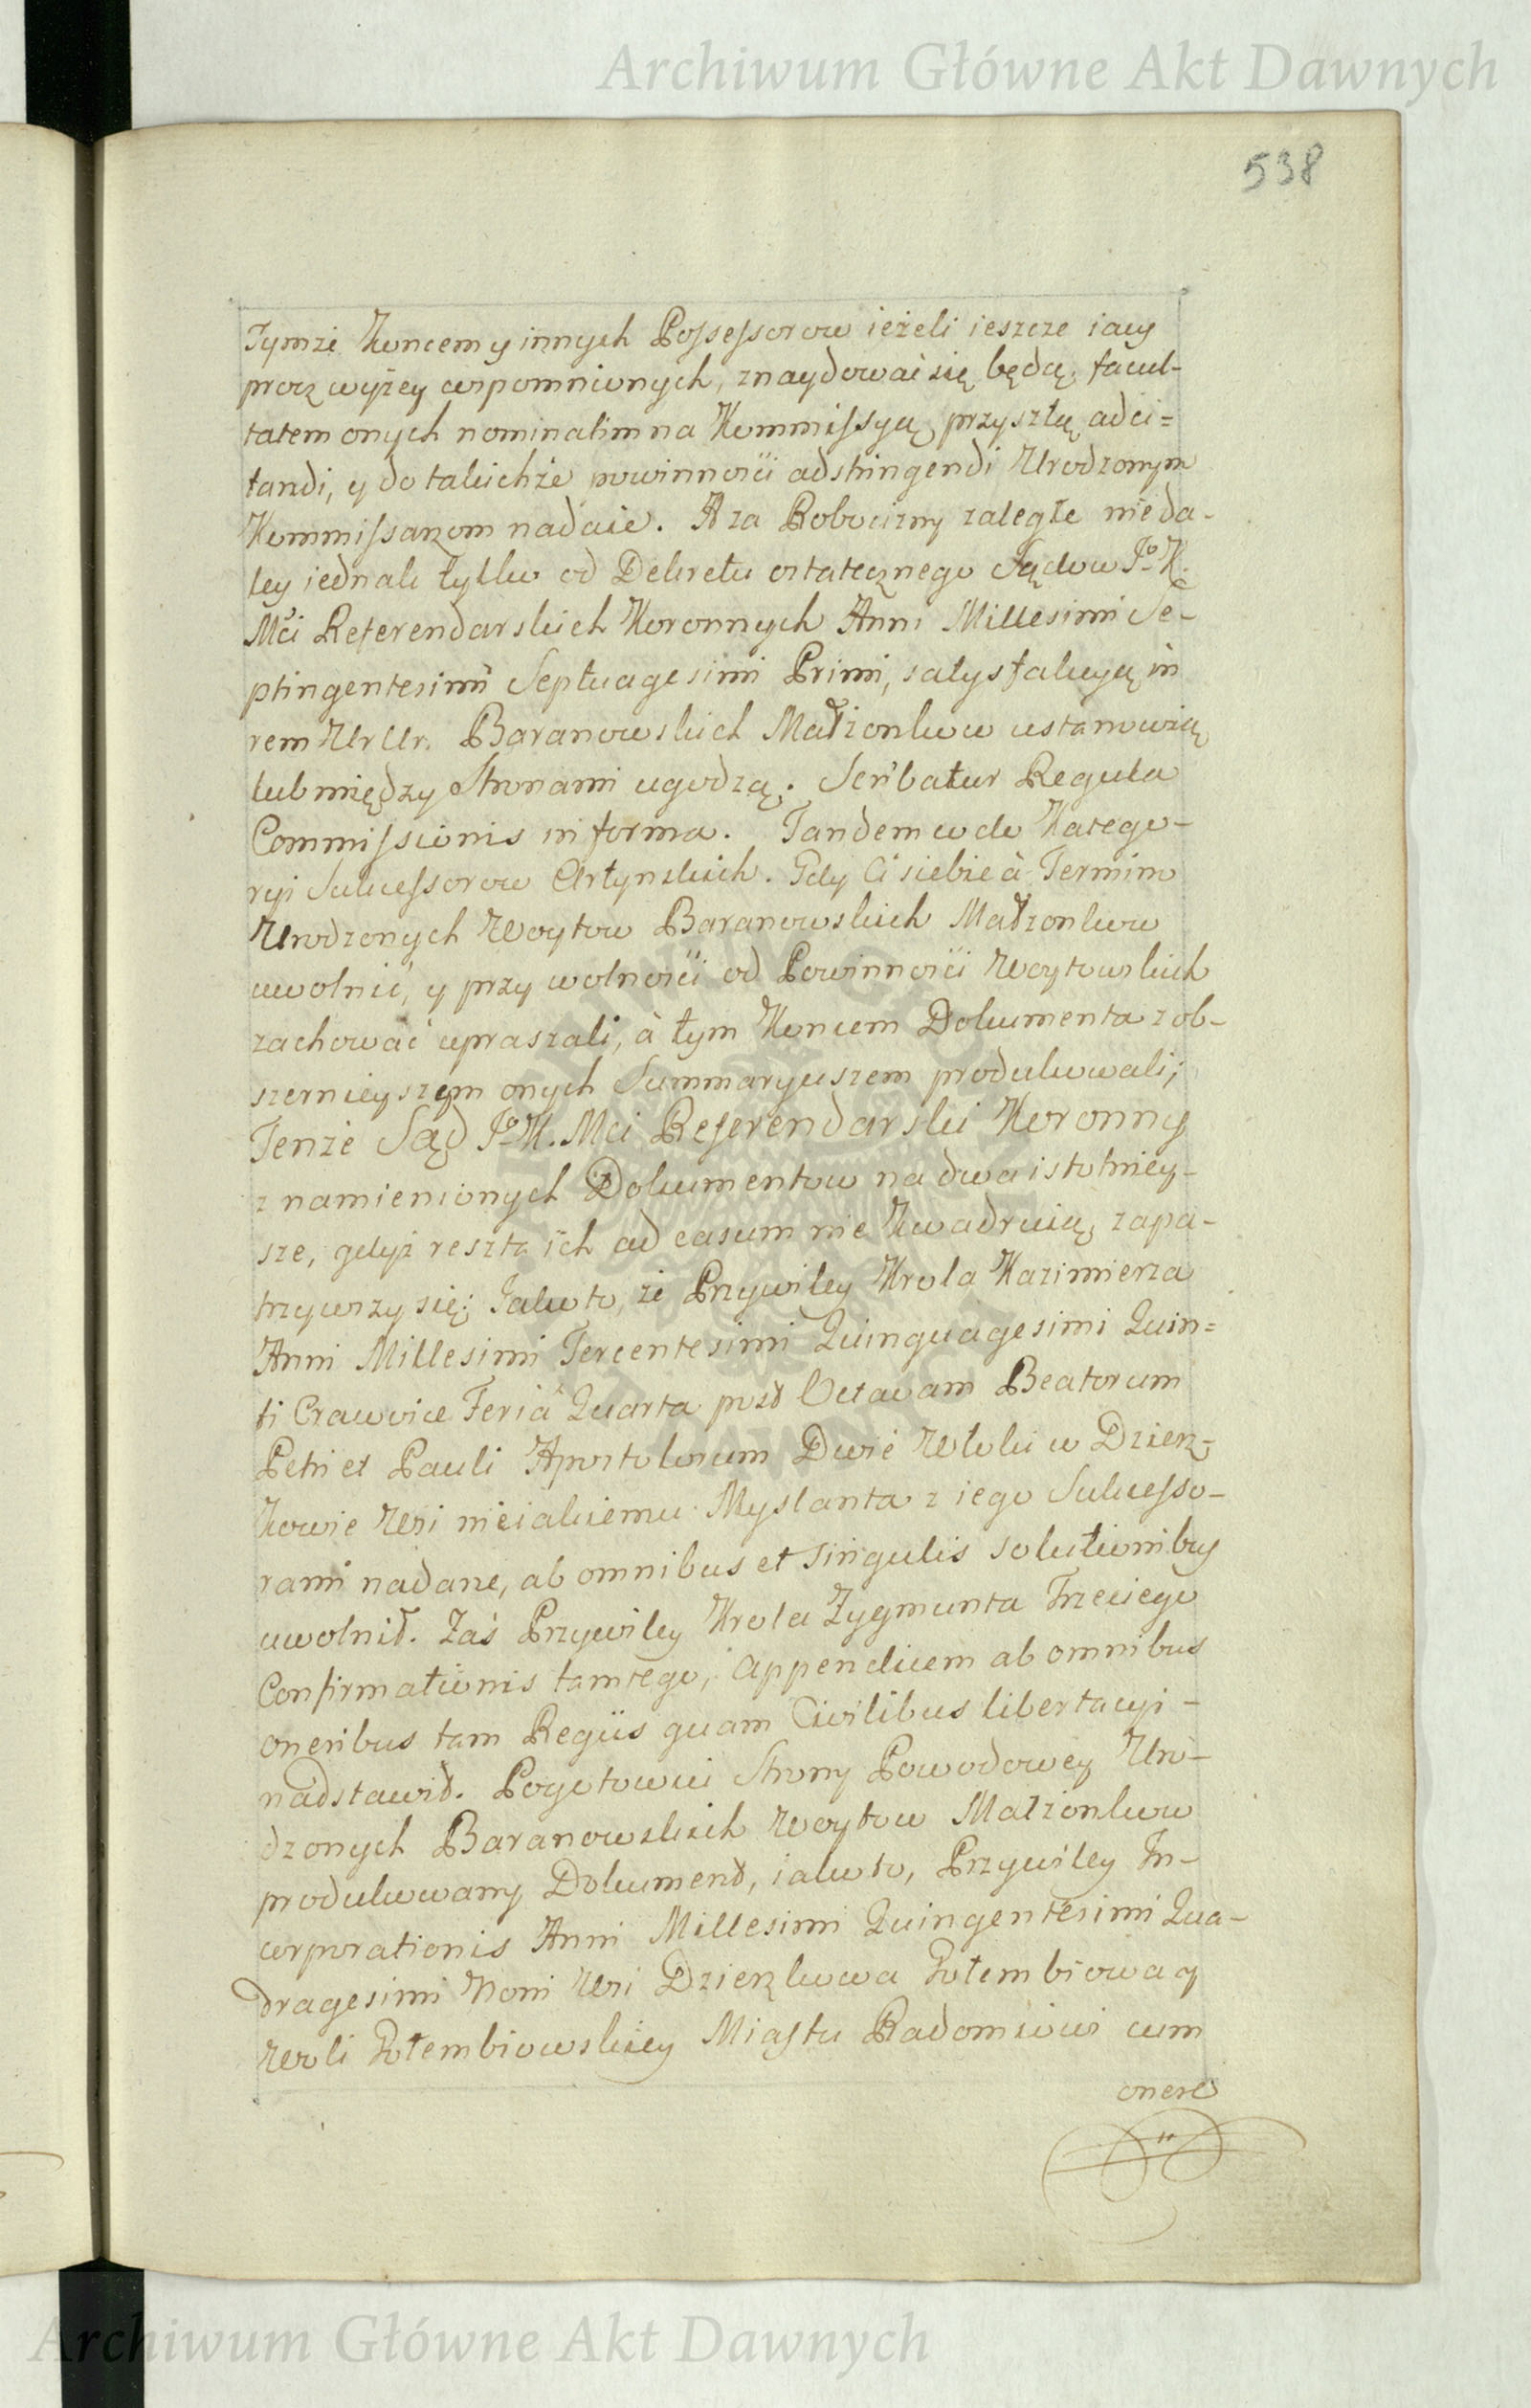 Archiwum Główne Akt Dawnych
538
Tymże Koncem y innych Possessorow ieżeli ieszcze iacy
procz wyżey wspomnionych, znaydować się będą, facul-
tatem onych nominatim na Kommissyą przyszłą adci=
tandi, y do takichże powinności adstringendi Urodzonym
Kommissarzom nadaie. A za Robocizny zaległe nieda-
ley iednak tylko od Dekretu ostatecznego Sądow Jo K.
Mci Referendarskich Koronnych Anni Millesimi Se-
ptingentesimi Septuagesimi Primi, satysfakcyą in
rem Ur Ur. Baranowskich Małżonkow ustanowią
lub między Stronami ugodzą. Scribatur Regula
Commissionis in forma. Tandem co do Katego-
ryi Sukcessorow Artynskich. Gdy Ci siebie à Termino
Urodzonych Woytow Baranowskich Małżonkow
uwolnić, y przy wolności od Powinności Woytowskich
zachować upraszali, à tym Koncem Dokumenta z ob-
szernieyszym onych Summaryuszem produkowali;
Tenże Sąd Jo K. Mci Referendarski Koronny
z namienionych Dokumentow na dwa istotniey-
sze, gdyż reszta ich ad casum nie Kwadruią, zapa-
trzywszy się; Jako to, że Przywiley Krola Kazimierza
Anni Millesimi Tercentesimi Quinquagesimi Quin=
ti Cracoviæ Feriâ Quarta post Octavam Beatorum
Petri et Pauli Apostolorum Dwie Włoki w Dzierz-
kowie Wsi nieiakiemu Myslanta z iego Sukcesso-
rami nadane, ab omnibus et singulis solutionibus
uwolnił. Zaś Przywiley Krola Zygmunta Trzeciego
Confirmationis tamtego, appendicem ab omnibus
oneribus tam Regiis quam Civilibus libertacyi-
nadstawił. Pogotowiu Strony Powodowey Uro-
dzonych Baranowskich Woytow Małżonkow
produkowany Dokument, iako to, Przywiley In-
corporationis Anni Millesimi Quingentesimi Qua-
dragesimi Noni Wsi Dzierzkowa Gołembiowa y
Woli Gołembiowskiey Miastu Radomiowi cum
onere
Archiwum Główne Akt Dawnych